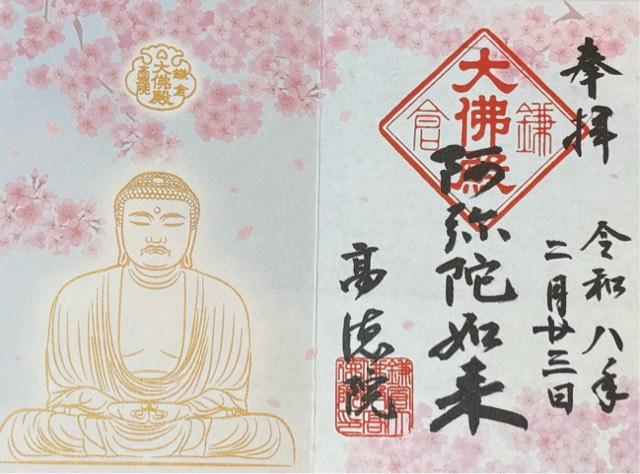 奉拝
令和八年
二月廿三日
大佛殿
鎌倉
阿弥陀如来
高徳院
鎌倉
大佛殿
高徳院